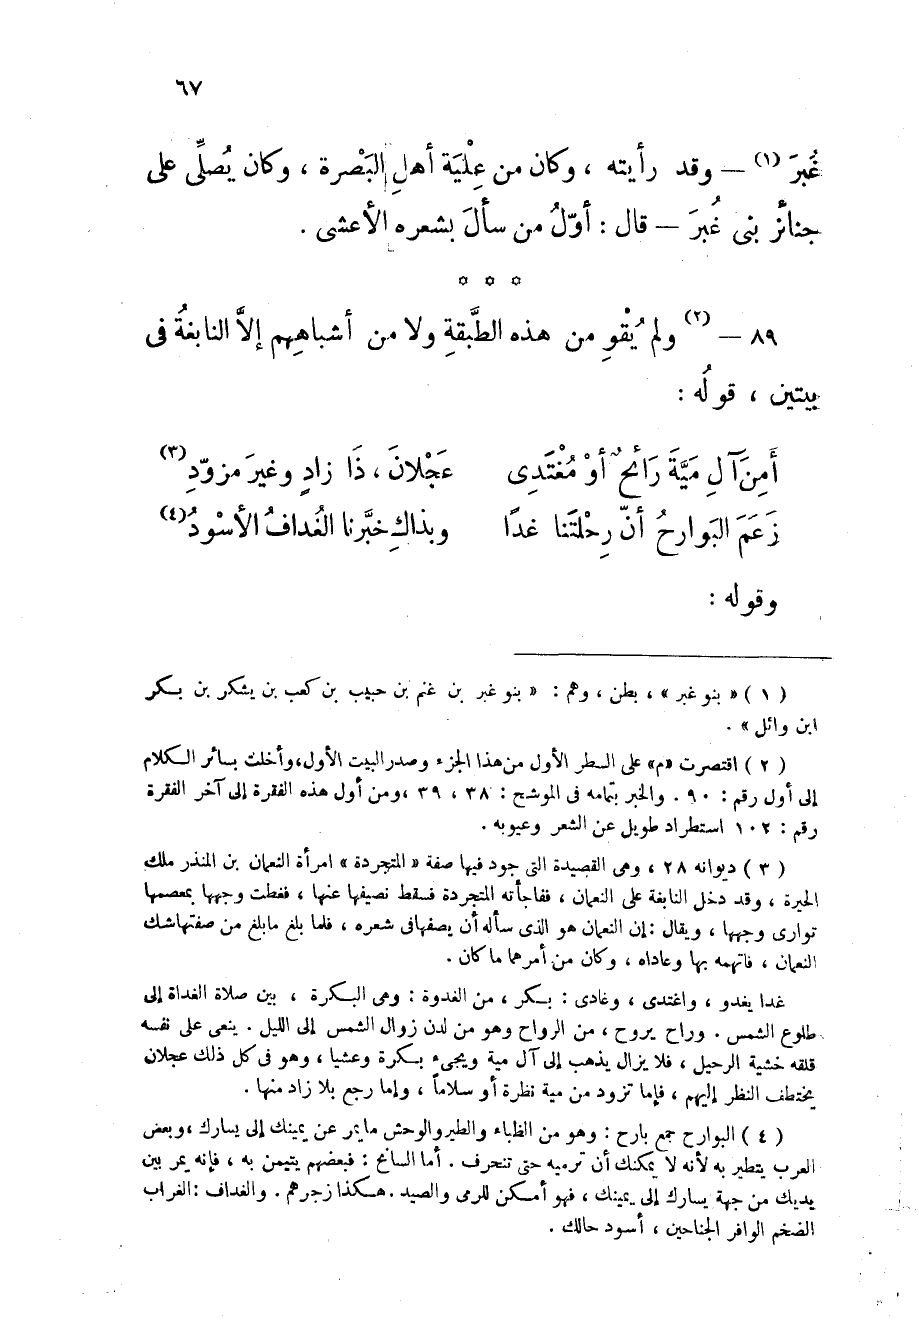 ٦٧
غُبَرَ (١) — وقد رأيته ، وكان من عِلْيَة أهلِ البَصْرة ، وكان يُصلِّى على
جنائز بنى غُبَرَ — قال : أوّلُ من سألَ بشعره الأعشى .
* * *
٨٩ — (٢) ولم يُقْوِ من هذه الطَّبقةِ ولا من أشباهِهم إلاَّ النابغةُ فى
بيتين ، قولُه :
أَمِنَ آلِ مَيَّةَ رَائحٌ أَوْ مُغْتَدِى عَجْلانَ ، ذَا زادٍ وغيرَ مزوّدِ (٣)
زَعَمَ البَوارحُ أنّ رِحْلتَنا غدًا وبذاكِ خبَّرنا الغُدافُ الأسْودُ (٤)
وقوله :
( ١ ) « بنو غبر » ، بطن ، وهم : « بنو غبر بن غنم بن حبيب بن كعب بن يشكر بن بكر
ابن وائل » .
( ٢ ) اقتصرت «م» على السطر الأول من هذا الجزء وصدر البيت الأول، وأخلت بسائر الكلام
إلى أول رقم : ٩٠ . والخبر بتمامه فى الموشح : ٣٨ ، ٣٩ ، ومن أول هذه الفقرة إلى آخر الفقرة
رقم : ١٠٢ استطراد طويل عن الشعر وعيوبه .
( ٣ ) ديوانه ٢٨ ، وهى القصيدة التى جود فيها صفة « المتجردة » امرأة النعمان بن المنذر ملك
الحيرة ، وقد دخل النابغة على النعمان ، ففاجأته المتجردة فسقط نصيفها عنها ، فغطت وجهها بمعصمها
توارى وجهها ، ويقال : إن النعمان هو الذى سأله أن يصفها فى شعره ، فلما بلغ ما بلغ من صفتها شك
النعمان ، فاتهمه بها وعاداه ، وكان من أمرهما ما كان .
غدا يغدو ، واغتدى ، وغادى : بكر ، من الغدوة : وهى البكرة ، بين صلاة الغداة إلى
طلوع الشمس . وراح يروح ، من الرواح وهو من لدن زوال الشمس إلى الليل . ينعى على نفسه
قلقه خشية الرحيل ، فلا يزال يذهب إلى آل مية ويجىء بكرة وعشيا ، وهو فى كل ذلك عجلان
يختطف النظر إليهم ، فإما تزود من مية نظرة أو سلاماً ، وإما رجع بلا زاد منها .
( ٤ ) البوارح جمع بارح : وهو من الظباء والطير والوحش ما يمر عن يمينك إلى يسارك ، وبعض
العرب يتطير به لأنه لا يمكنك أن ترميه حتى تنحرف . أما السانح : فبعضهم يتيمن به ، فإنه يمر بين
يديك من جهة يسارك إلى يمينك ، فهو أمكن للرمى والصيد . هكذا زجرهم . والغداف : الغراب
الضخم الوافر الجناحين ، أسود حالك .